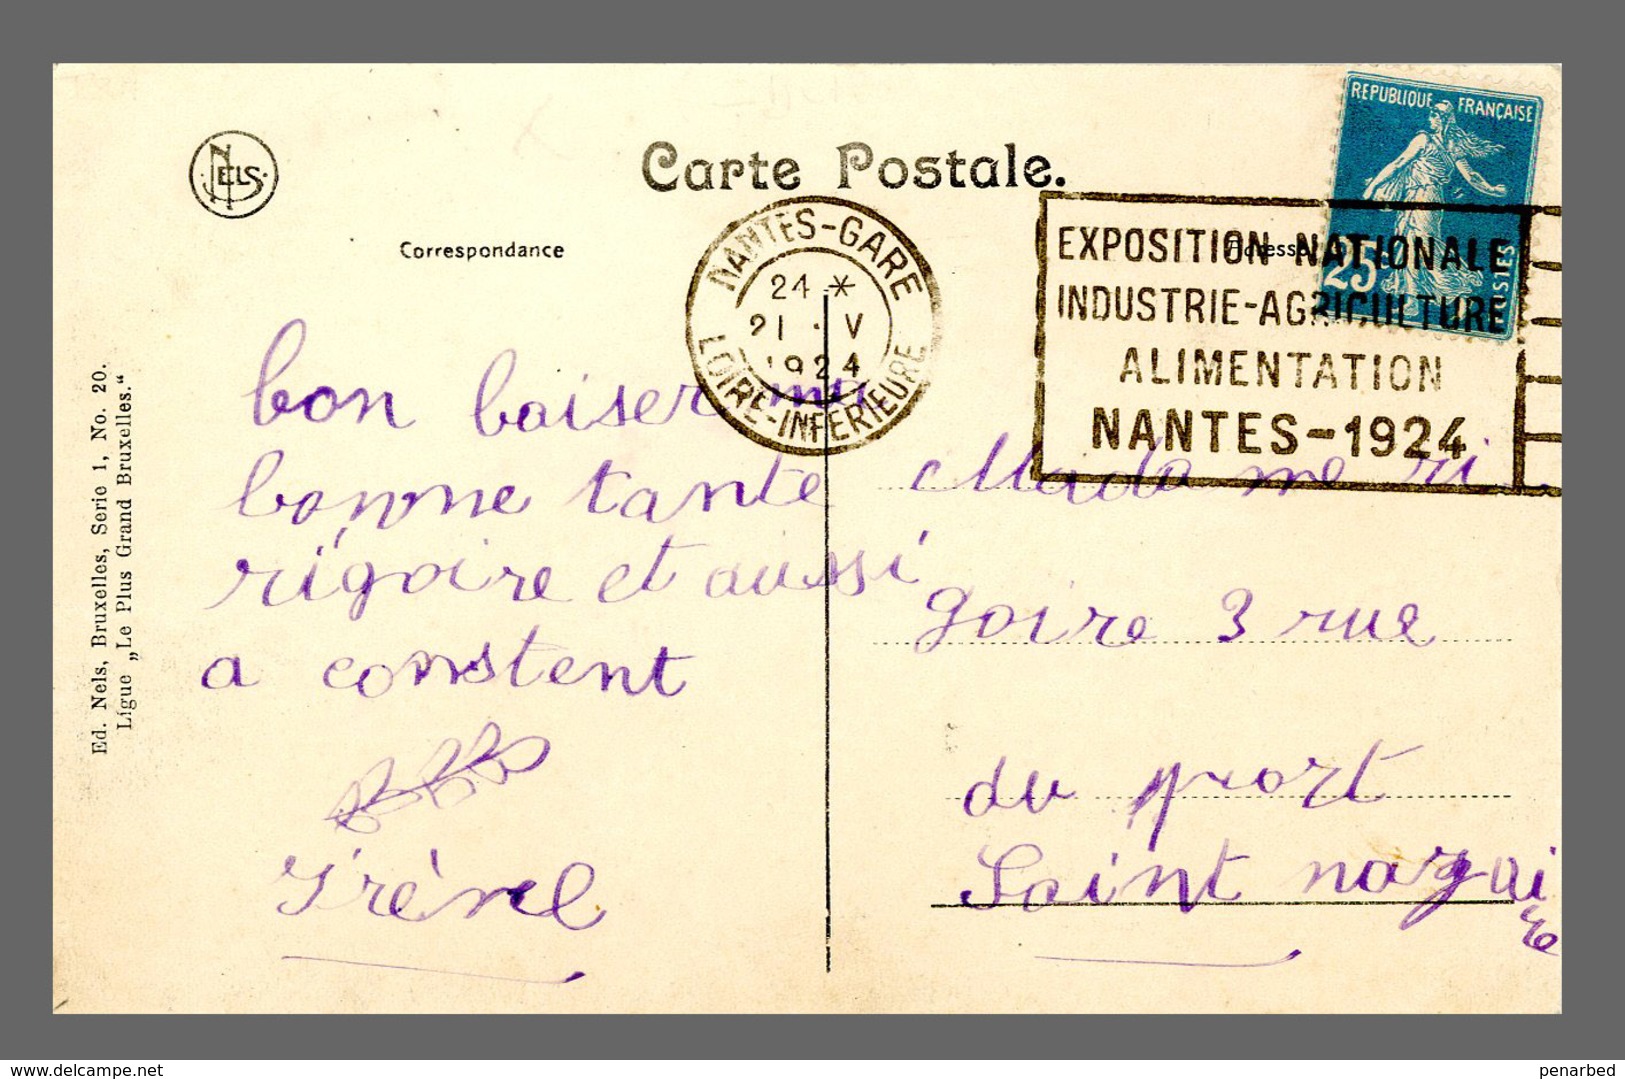 NELS
Carte Postale.
Correspondance
Adresse
REPUBLIQUE FRANÇAISE
25c
POSTES
NANTES-GARE
24 *
21 · V
1924
LOIRE-INFERIEURE
EXPOSITION NATIONALE
INDUSTRIE-AGRICULTURE
ALIMENTATION
NANTES-1924
Ed. Nels, Bruxelles, Serie 1, No. 20.
Ligue „Le Plus Grand Bruxelles.“
bon baiser ma
bonne tante
rigoire et aussi
a constent
Irène
Madame ri
goire 3 rue
du port
Saint nazai
re
www.delcampe.net
penarbed